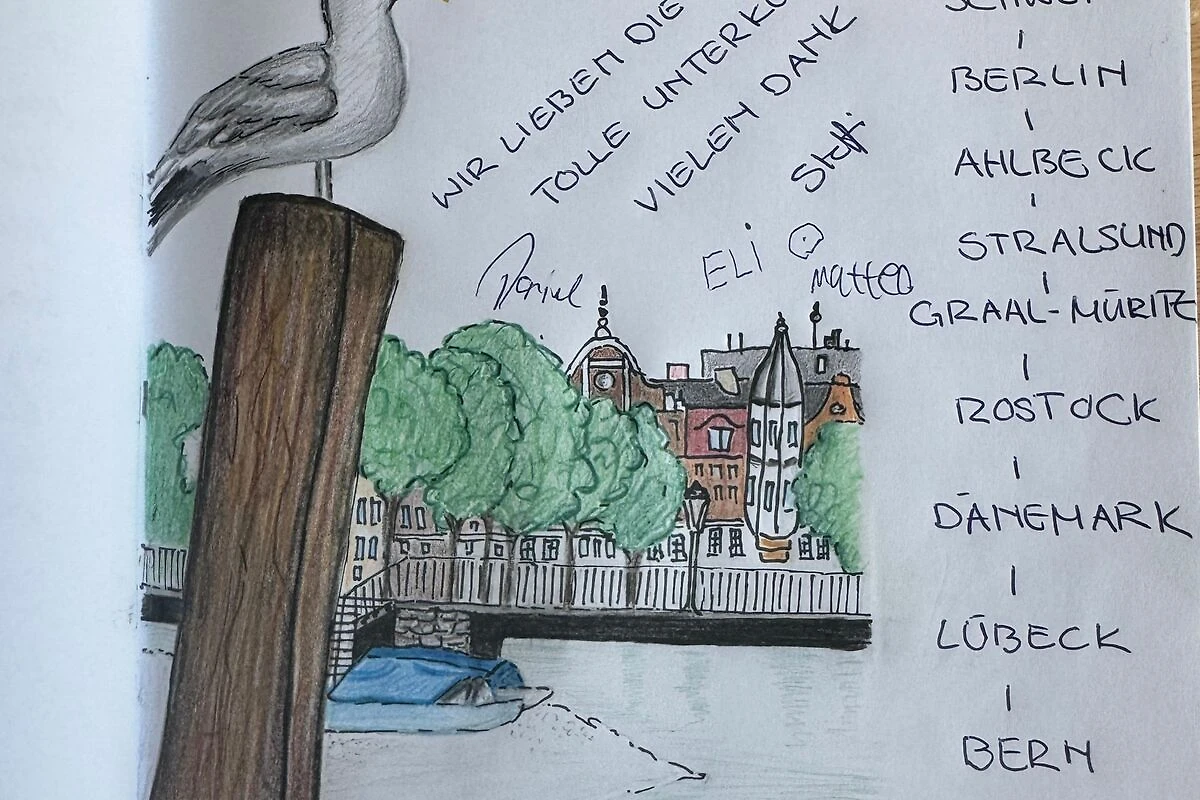 WIR LIEBEN DIE
TOLLE
VIELEN DANK
Steffi
Daniel
ELI
matteo
BERLIN
AHLBECK
STRALSUND
GRAAL-MÜRITZ
ROSTOCK
DÄNEMARK
LÜBECK
BERN